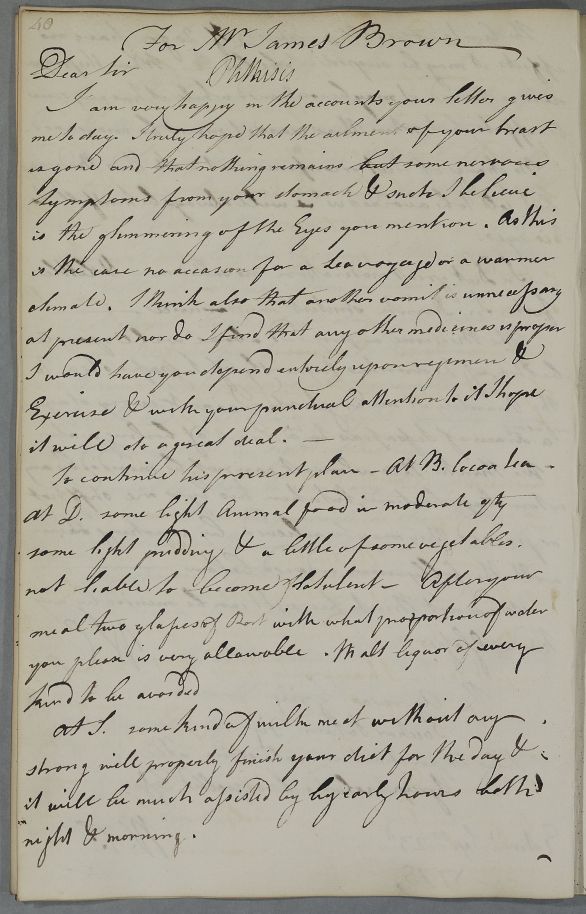 40
For Mr James Brown
Dear Sir Phthisis
I am very happy in the accounts your letter gives
me to day. I truly hope that the ailment of your breast
is gone and that nothing remains but some nervous
symptoms from your stomach & such I believe
is the glimmering of the Eyes you mention. As this
is the case no occasion for a Sea voyage or a warmer
climate. I think also that another vomit is unnecessary
at present nor do I find that any other medicines is proper
I would have you depend entirely upon regimen &
Exercise & with your punctual attention to it I hope
it will do a great deal. —
To continue his present plan – At B. Cocoa tea –
at D. some light Animal food in moderate qty
some light pudding & a little of some vegetables.
not liable to become flatulent – After your
meal two glasses of Port with what proportion of water
you please is very allowable. Malt liquor of every
kind to be avoided
At S. some kind of milk meat without any
strong will properly finish your diet for the day &
it will be much assisted by by early hours both
night & morning.